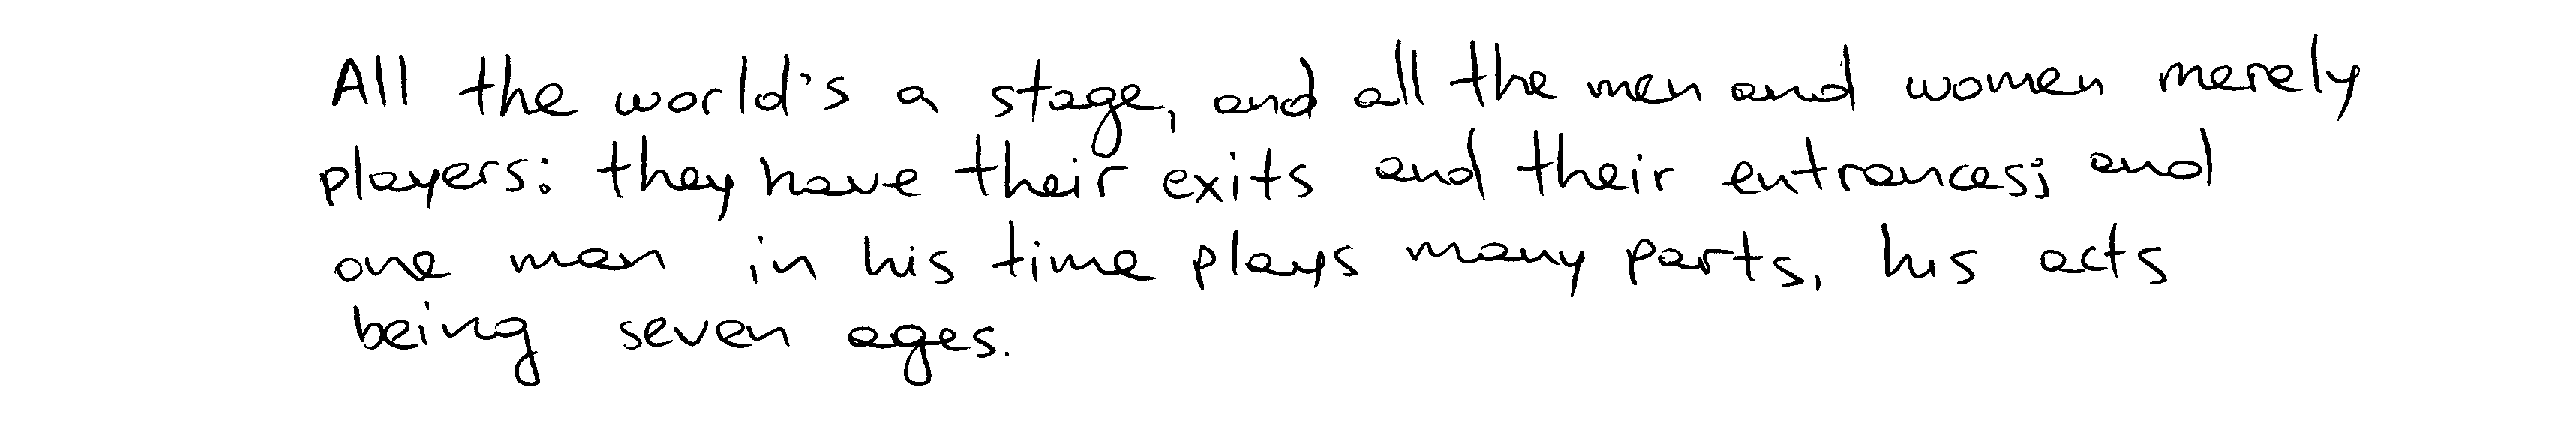 All the world's a stage, and all the men and women merely
players: they have their exits and their entrances; and
one man in his time plays many parts, his acts
being seven ages.